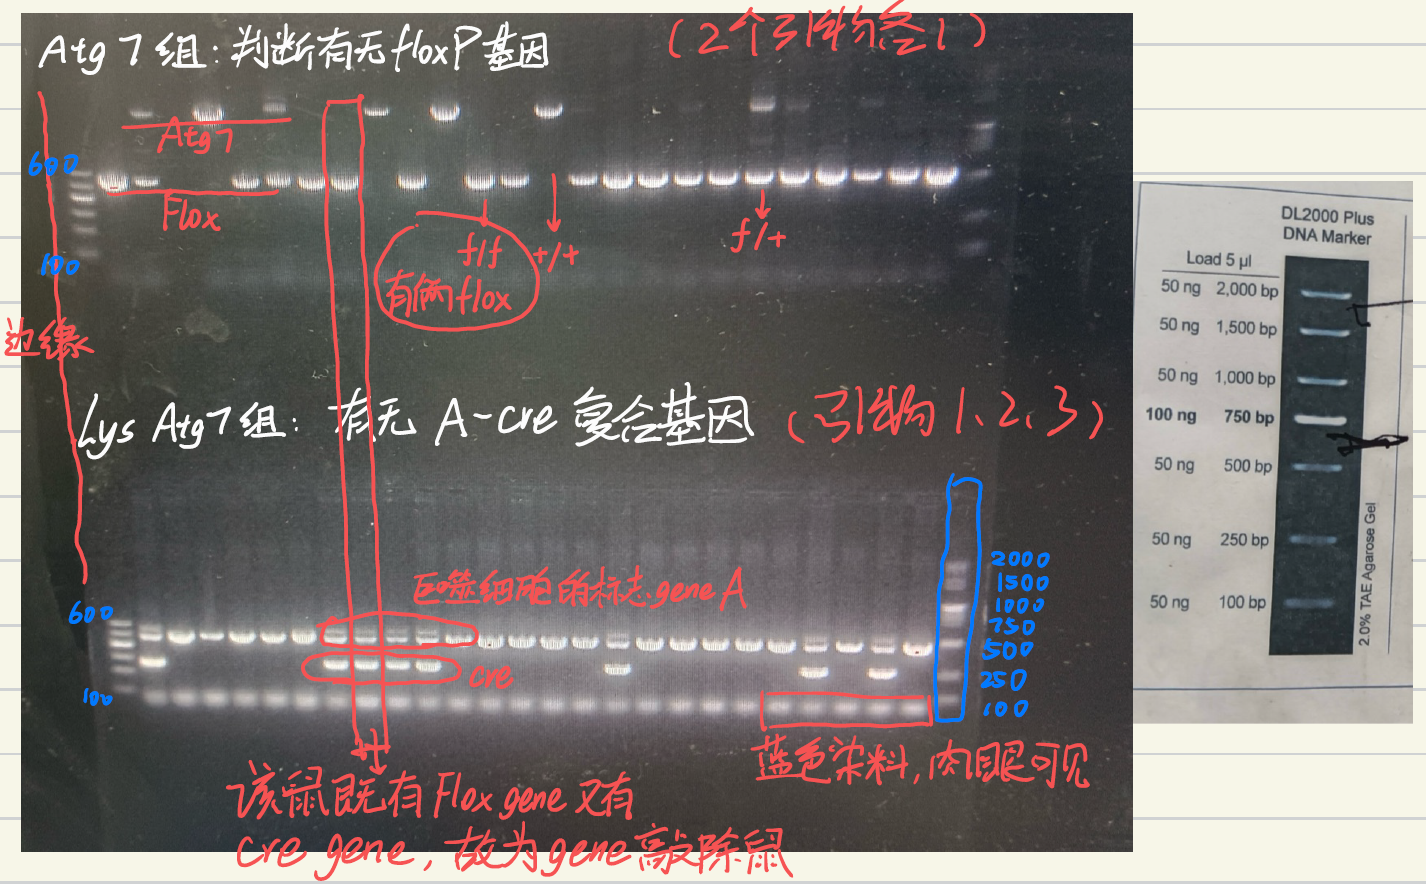 Atg 7组：判断有无floxP基因
（2个引物各1）
Atg 7
600
Flox
100
f/f
+/+
f/+
有俩flox
边缘
Lys Atg7组：有无 A-cre 复合基因
（引物 1、2、3）
巨噬细胞的标志gene A
2000
1500
1000
750
500
250
100
600
cre
100
蓝色染料，肉眼可见
该鼠既有 Flox gene 又有
cre gene，故为gene敲除鼠
DL2000 Plus
DNA Marker
Load 5 µl
50 ng 2,000 bp
50 ng 1,500 bp
50 ng 1,000 bp
100 ng 750 bp
50 ng 500 bp
50 ng 250 bp
50 ng 100 bp
2.0% TAE Agarose Gel